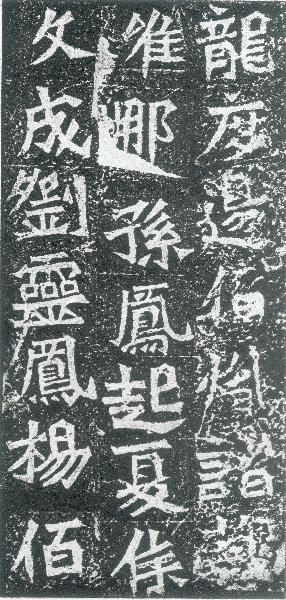 龍度邊佰諧
維那孫鳳起夏侯
文成劉靈鳳楊佰